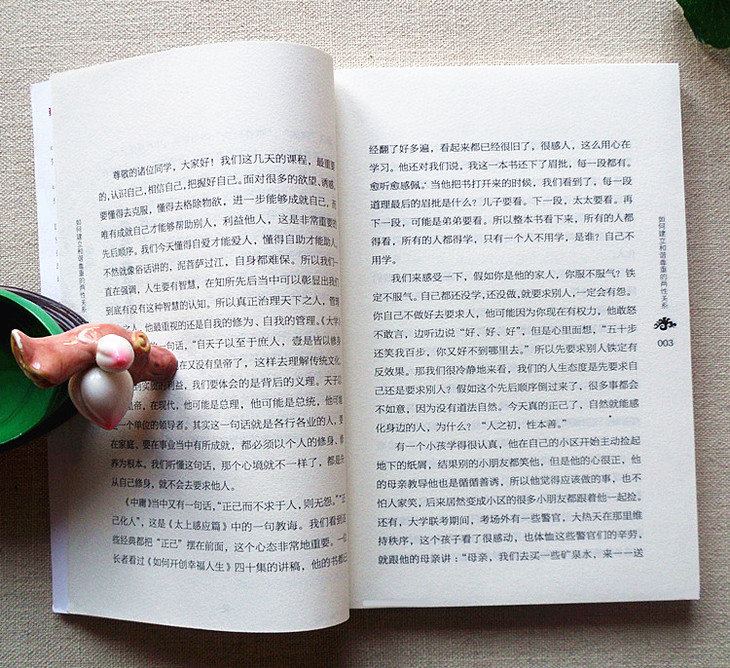 尊敬的诸位同学，大家好！我们这几天的课程，最重要
的，认识自己，相信自己，把握好自己。面对很多的欲望、诱惑，
要懂得去克服，懂得去格除物欲，进一步能够成就自己，而
唯有成就自己才能够帮助别人，利益他人，这是非常重要的
先后顺序。我们今天懂得自爱才能爱人，懂得自助才能助人，
不然就像俗话讲的，泥菩萨过江，自身都难保。所以我们一
直在强调，人生要有智慧，在知所先后当中可以彰显出我们
到底有没有这种智慧的认知。所以真正治理天下之人，管理
人，他最重视的还是自我的修为、自我的管理。《大学》
一句话，“自天子以至于庶人，壹是皆以修身
在又没有皇帝了，这样去理解传统文化
到实质的利益，我们要体会的是背后的义理。天子以
是皇帝，在现代，他可能是总理，他可能是总统，他可能
是一个单位的领导者。其实这一句话就是各行各业的人，要
在家庭、要在事业当中有所成就，都必须以个人的修身、修
养为根本。我们听懂这句话，那个心境就不一样了，都是先
从自己修身，就不会去要求他人。
《中庸》当中又有一句话，“正己而不求于人，则无怨。”“正
己化人”，这是《太上感应篇》中的一句教诲。我们看到这
些经典都把“正己”摆在前面，这个心态非常地重要。一
长者看过《如何开创幸福人生》四十集的讲稿，他的书都
如何建立和谐尊重的两性关系
经翻了好多遍，看起来都已经很旧了，很感人，这么用心在
学习。他还对我们说，我这一本书还下了眉批，每一段都有。
愈听愈感佩，当他把书打开来的时候，我们看到了，每一段
道理最后的眉批是什么？儿子要看。下一段，太太要看。再
下一段，可能是弟弟要看。所以整本书看下来，所有的人都
得看，所有的人都得学，只有一个人不用学，是谁？自己不
用学。
我们来感受一下，假如你是他的家人，你服不服气？铁
定不服气。自己都还没学，还没做，就要求别人，一定会有怨。
你自己不做好去要求人，他可能因为你现在有权力，他敢怒
不敢言，边听边说“好、好、好”，但是心里面想，“五十步
还笑我百步，你又好不到哪里去。”所以先要求别人铁定有
反效果。那我们很冷静地来看，我们的人生态度是先要求自
己还是要求别人？假如这个先后顺序倒过来了，很多事都会
不如意，因为没有道法自然。今天真的正己了，自然就能感
化身边的人，为什么？“人之初，性本善。”
有一个小孩学得很认真，他在自己的小区开始主动捡起
地下的纸屑，结果别的小朋友都笑他，但是他的心很正，他
的母亲教导他也是循循善诱，所以他觉得应该做的事，也不
怕人家笑，后来居然变成小区的很多小朋友都跟着他一起捡。
还有，大学联考期间，考场外有一些警官，大热天在那里维
持秩序，这个孩子看了很感动，也体恤这些警官们的辛劳，
就跟他的母亲讲：“母亲，我们去买一些矿泉水，来一一送
如何建立和谐尊重的两性关系
003